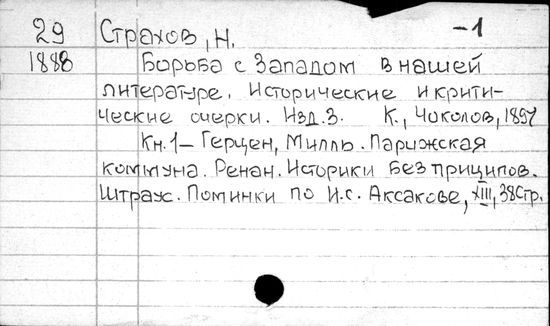 29 Страхов, Н. -1
1888 Борьба с Западом в нашей
литературе. Исторические и крити-
ческие очерки. Изд.3. К., Чоколов, 1897
Кн.1- Герцен, Милль. Парижская
коммуна. Ренан. Историки без приципов.
Штраус. Поминки по И.С. Аксакове, XIII, 38стр.